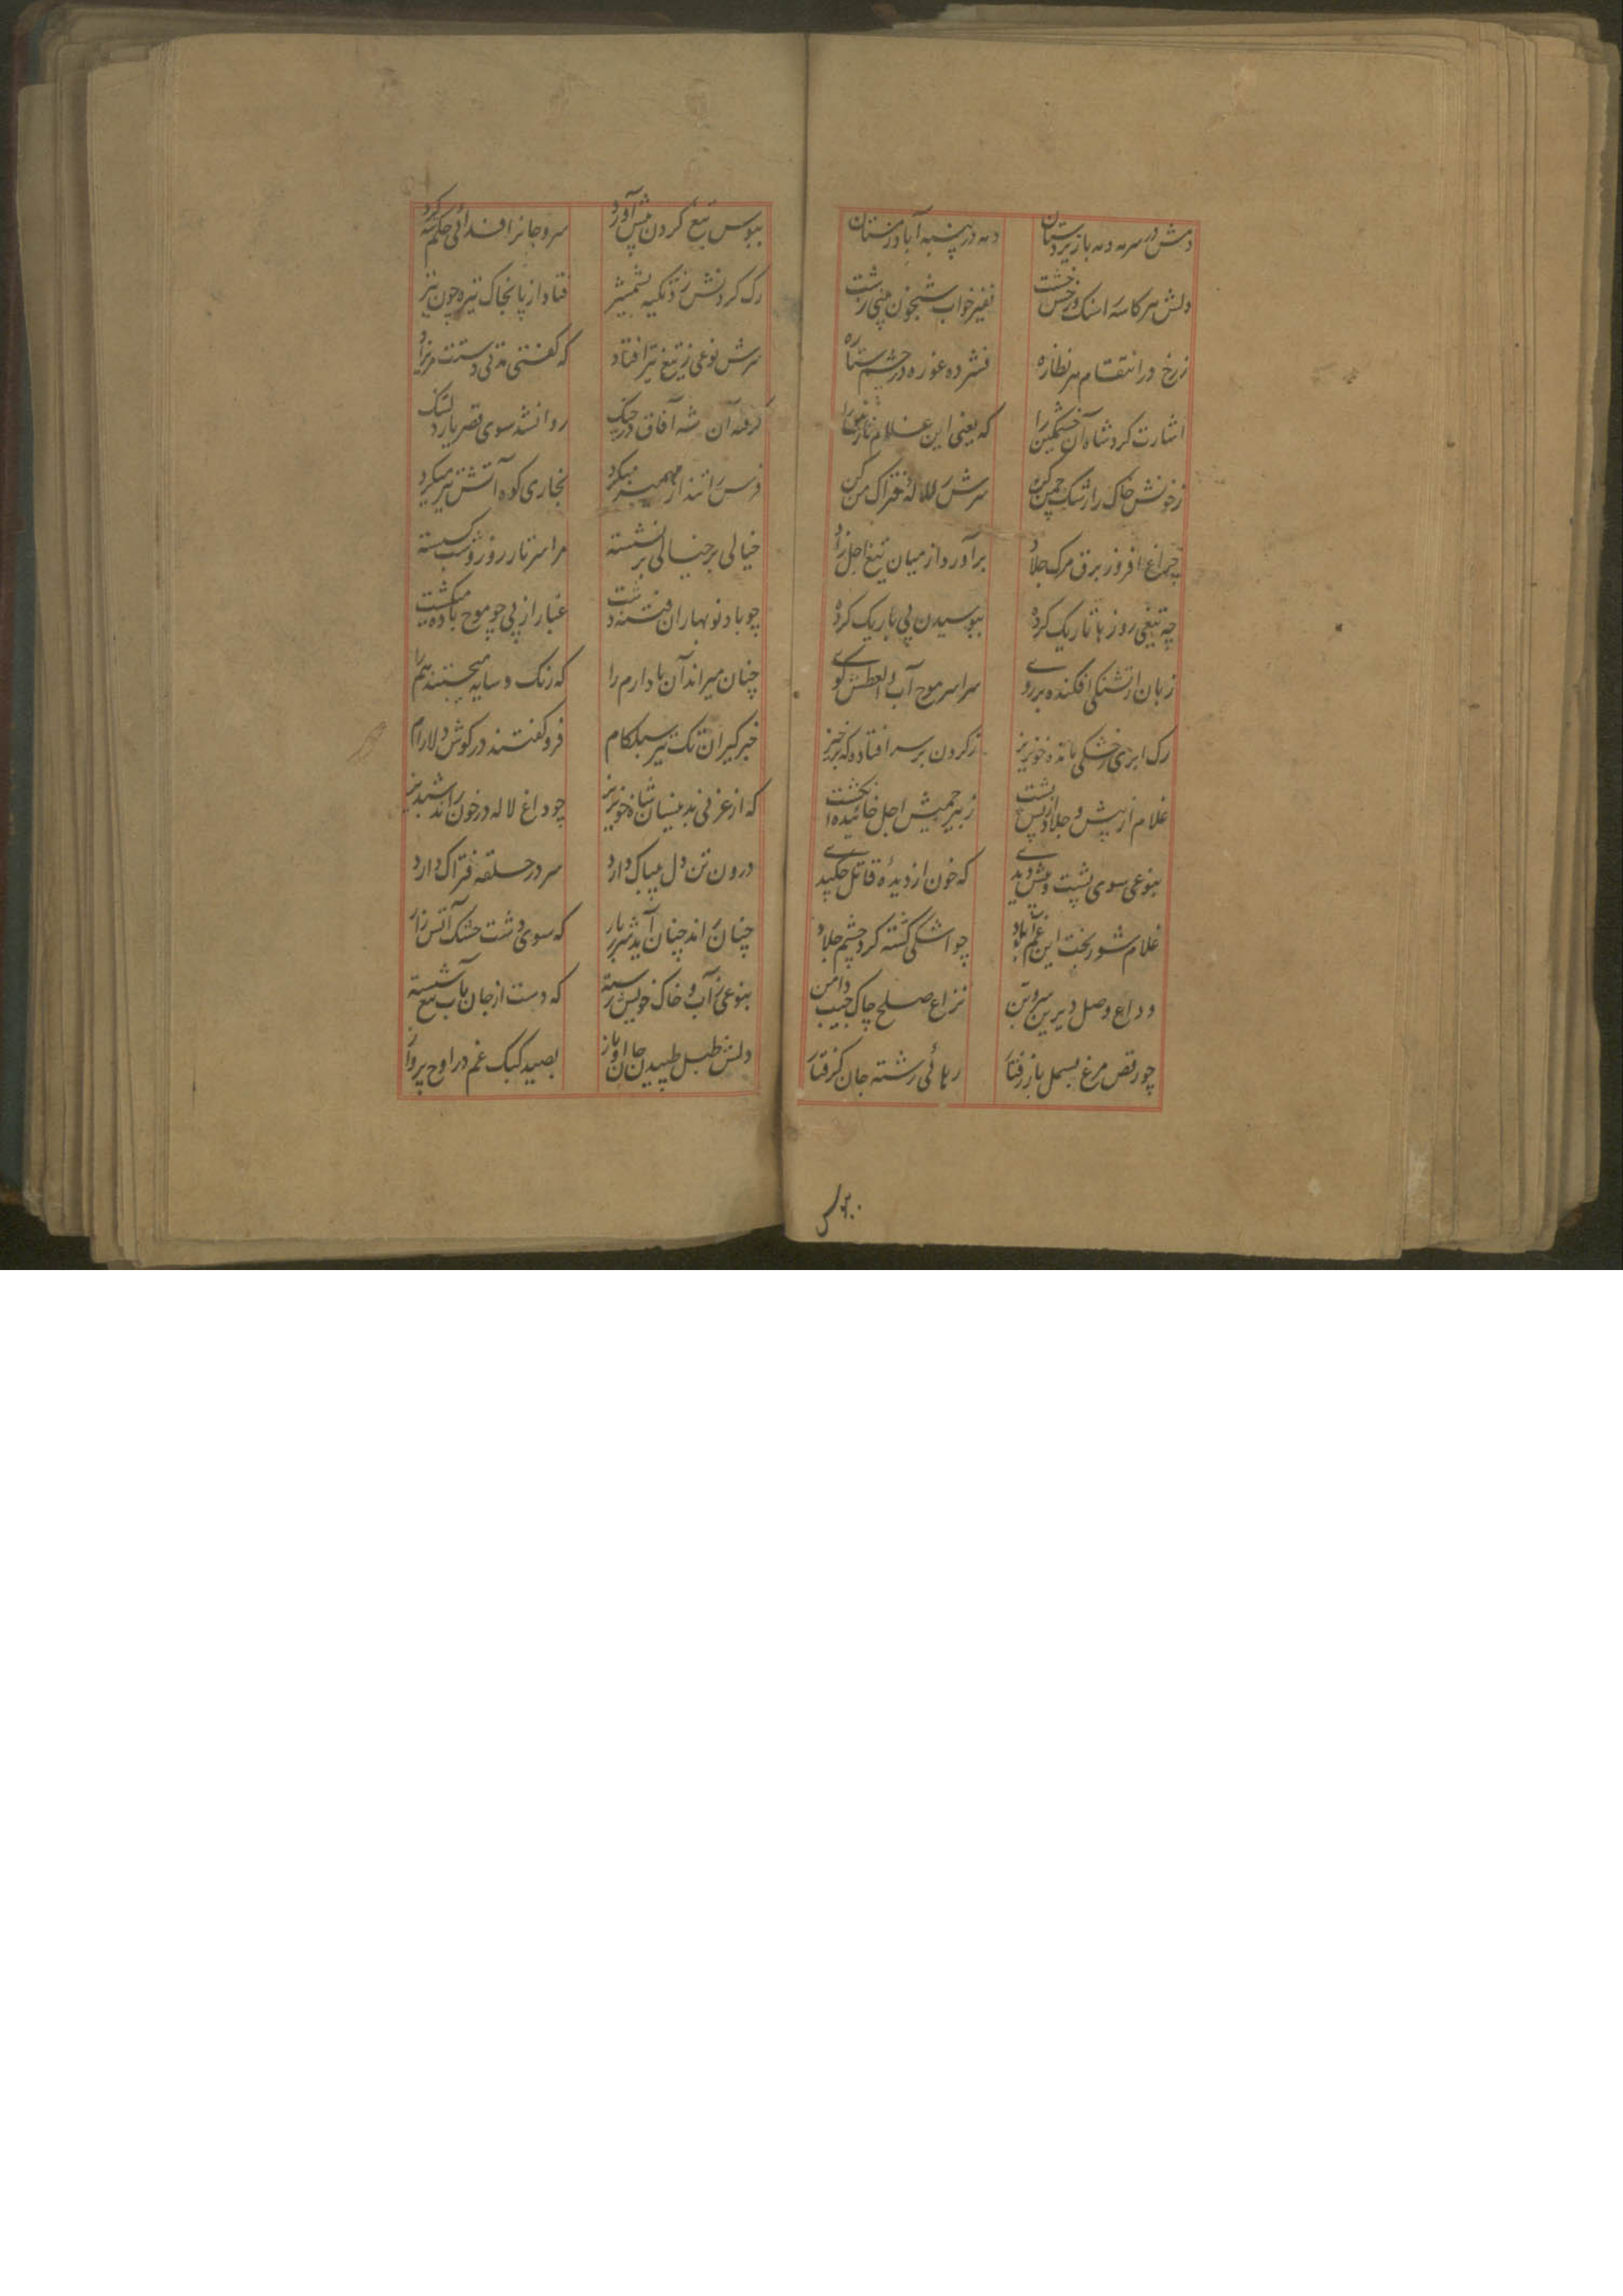 دمش در سرمه دمه باز زیردستان دمه در پنبه آباد زمستان
دلش هر کاسه اشک و رخش خشت نفیر خواب شبخون می رشت
ز رخ در انتقام هر نظاره فشرده غوره در چشم ستاره
اشارت کرد شاه آن خشمگین را که یعنی این غلام نازنین را
ز خونش خاک را رشک چمن کن سرش را لاله فتراک من کن
چراغ افروز برق مرک جلاد برآورد از میان تیغ اجل زاد
چه تیغی روزها تاریک کرده ببوسیدن پی باریک کرده
زبان از تشنکی افکنده بر روی سراسر موج آب و العطش کوی
رک ابری ز خشکی مانده خونریز ز کردن بر سر افتاده که برخیز
غلام از پیش و جلاد از پس پشت ز بیرحمیش اجل خائیده انکشت
بنوعی سوی پشت و پیش دیدی که خون از دیدهٔ قاتل چکیدی
غلام شوربخت این غم آباد چو اشکی کشته کرد چشم جلاد
وداع وصل دیرین سر و تن نزاع صلح چاک جیب و دامن
چو رقص مرغ بسمل باز رفتار رهائی رشته جان کرفتار
ببوس تیغ کردن پیش آورد سر و جانرا فدائی حکم شه کرد
رک کردنش زد تکیه بشمشیر فتاد از پا بخاک تیره چون تیر
سرش نوعی ز تیغ تیز افتاد که کفتی مدتی دستت مریزاد
کرفته آن شه آفاق در چنک روانشد سوی قصر یار دلتنک
فرس را تند از مهمیز میکرد بخاری کوه آتش تیز میکرد
خیالی بر خیالی برنشسته مراسر تار روز و شب کسسته
چو باد نوبهاران فتنه دشت غبار از پی چو موج باده میکشت
چنان میراند آن باد ارم را که رنک و سایه میجستند هم را
خبرکیران تک تیز سبککام فروکفتند در کوش دلارام
که از غزنی بدینسان شاه خونریز چو داغ لاله در خون راند شبدیز
درون تن دل بیباک دارد سر در حلقه فتراک دارد
چنان راند چنان آید شرربار که سوی دشت خشک آتش زار
بنوعی ز آب و خاک خویش رسته که دست از جان بآب تیغ شسته
دلش طبل طپیدن جان او باز بصید کبک غم در اوج پرواز